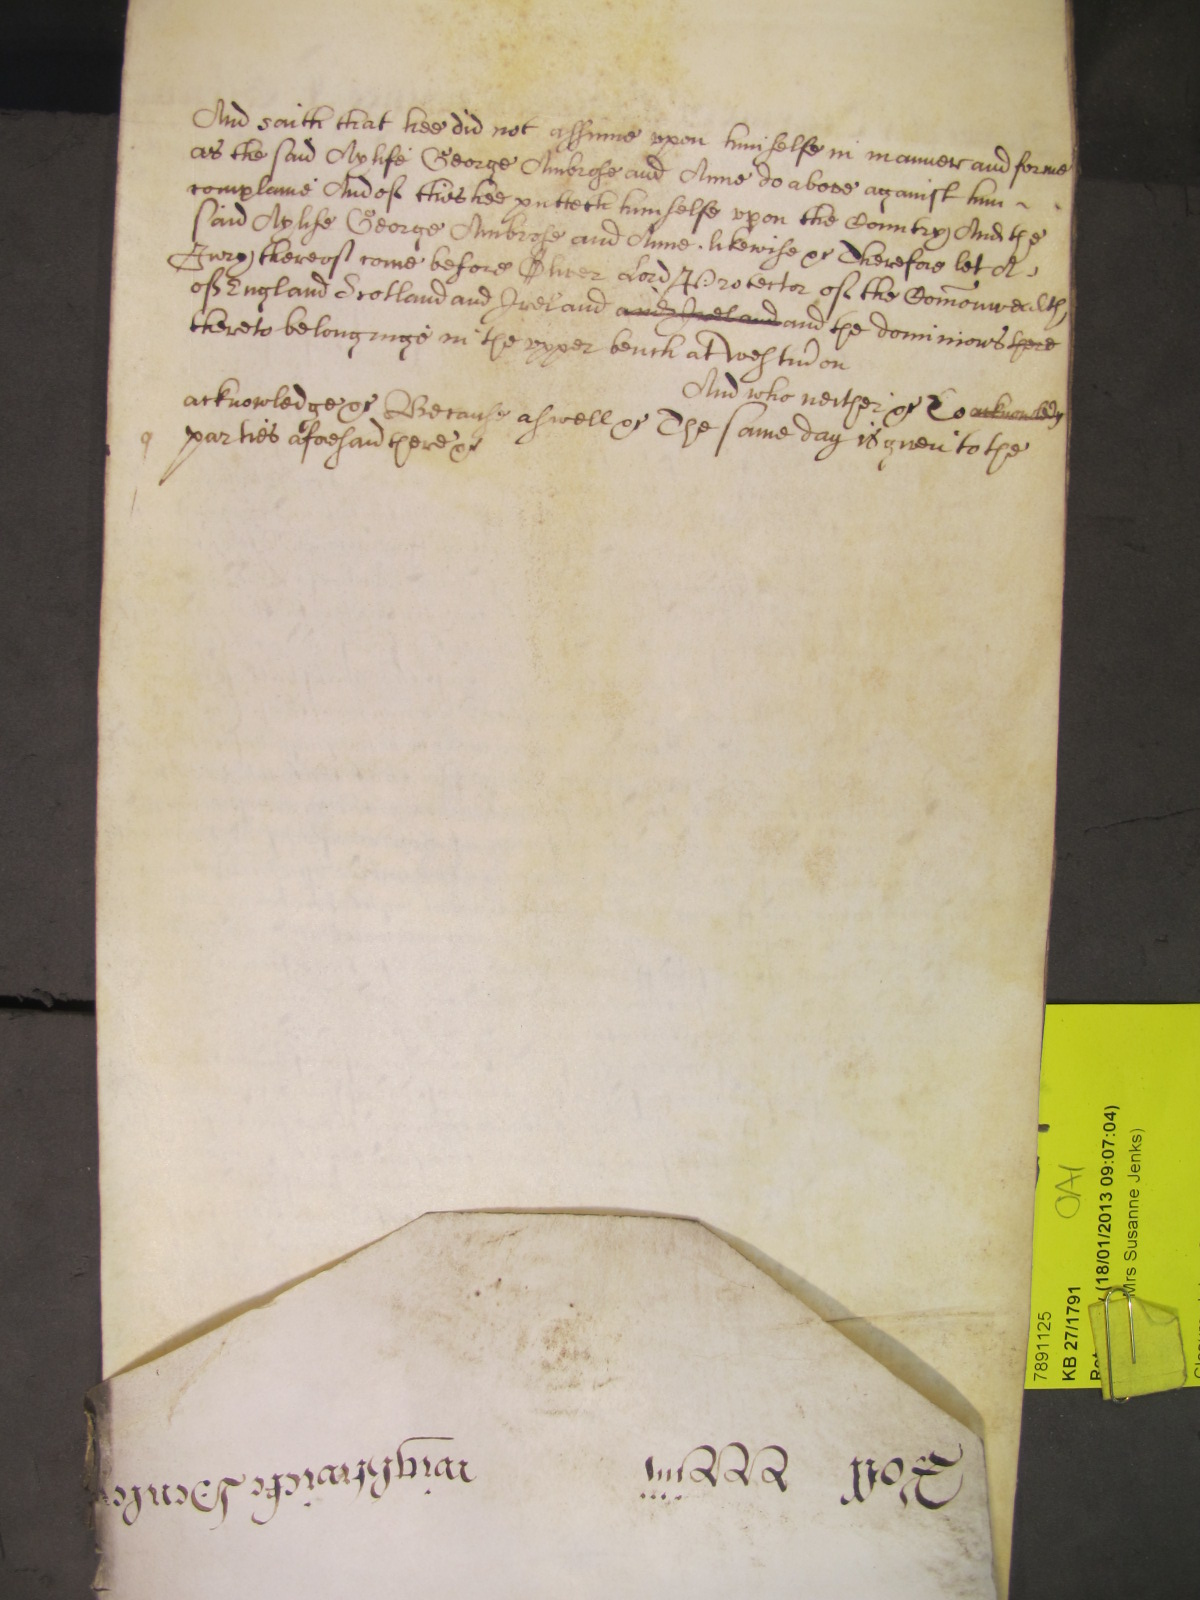 And saith that hee did not assume vpon himselfe in manner and forme
as the said Aylife George Ambrose and Anne do above against him
complaine And of this hee putteth himselfe vpon the Country And the
said Aylife George Ambrose and Anne likewise &c Therefore let A
Jury thereof come before Oliver Lord Protector of the Comonwealth
of England Scotland and Ireland and Ireland and the dominions here
thereto belonginge in the vpper bench at Westm̃ on
And who neither &c To acknowledg
acknowledge &c Because aswell &c The same day is given to the
parties aforesaid there &c
7891125
KB 27/1791
(18/01/2013 09:07:04)
Mrs Susanne Jenks)
OA1
Roll